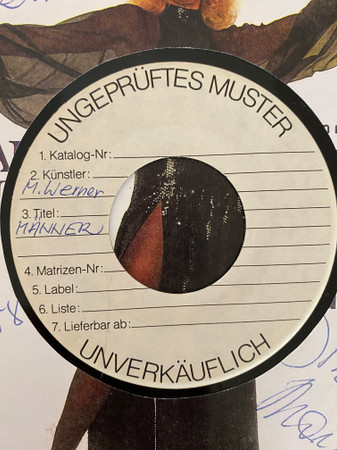 UNGEPRÜFTES MUSTER
1. Katalog-Nr:
2. Künstler:
M. Werner
3. Titel:
MÄNNER,
4. Matrizen-Nr:
5. Label:
6. Liste:
7. Lieferbar ab:
UNVERKÄUFLICH